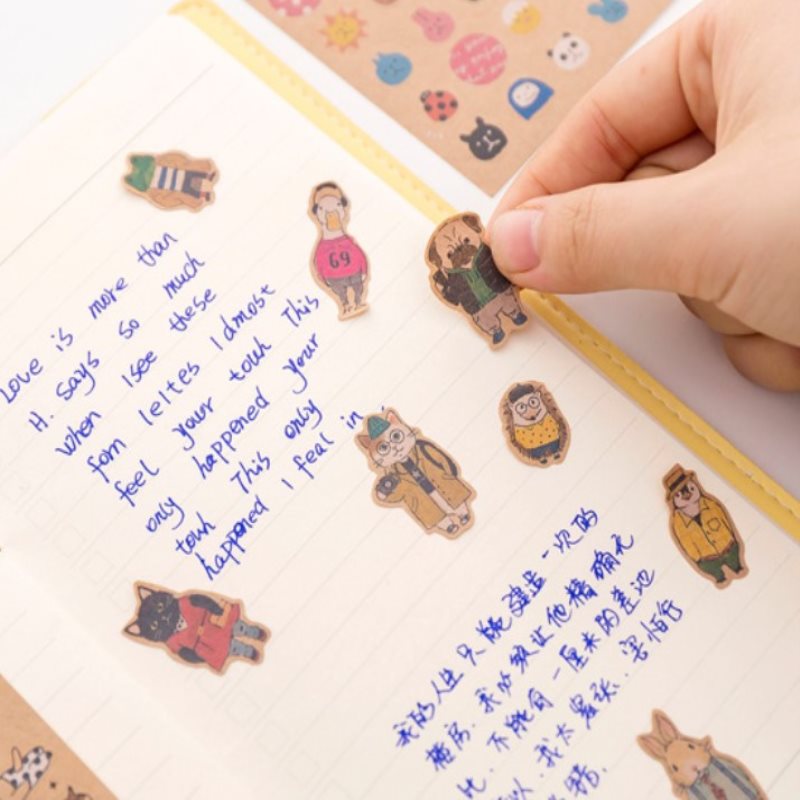 Love is more than
H. says so much
when Isee these
form leltes ldmost
feel your touh This
only happened your
touh This only
happened I feal in
69
我的人生只能建造一次的
楼房.我必须让他精确无
比.不能有一厘米的差池
所以.我太紧张.害怕行